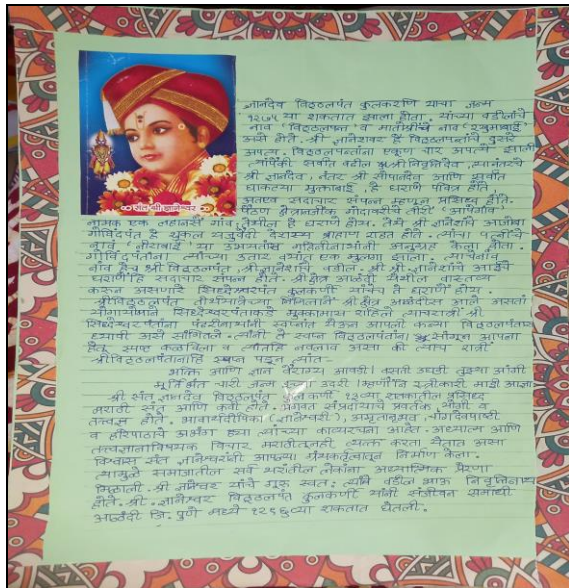 ज्ञानदेव विठ्ठलपंत कुलकरणि याचा जन्म
१२७५ या शकतात झाला होता. यांच्या वडीलांचे
नाव 'विठ्ठलपंत' व मातोश्रींचे नाव रखुमाबाई
असे होते. श्री. ज्ञानेश्वर हे विठ्ठलपंतांचे दुसरे
अपत्य. विठ्ठलपंतांना एकुण चार अपत्ये झाली
त्यांपैकी सर्वात वडील श्री निवृत्तिदेव, त्यानंतरचे
श्री ज्ञानदेव. नंतर श्री सोपानदेव आणि सर्वात
धाकट्या मुक्ताबाई. हे घराणे पवित्र होते
अतएव सदाचार संपन्न म्हणून प्रसिध्द होते.
पैठण क्षेत्रानजीक गोदावरीचे तीरी 'आपेगांव'
संत श्री ज्ञानेश्वर
नामक एक लहानसे गांव तेथील हे घराणे होय. तेथे श्री ज्ञानेशांचे आजोबा
गोविंदपंत हे शुक्ल यजुर्वेदी देशस्थ ब्राह्मण राहत होते. त्यांचा पत्नीचे
नाव 'नीराबाई' या उभयतांस गहिनीनाथांनी अनुग्रह केला होता.
गोविंदपंतांना त्यांच्या उतार वयांत एक मुलगा झाला. त्याचेनाव
नांव हेच श्री विठ्ठलपंत. श्री ज्ञानेशांचे वडील. श्री. श्री. ज्ञानेशांचे आईचे
घराणेहि सदाचार संपन्न होते. श्रीक्षेत्र आळंदी येथील वास्तव्य
करून असणारे सिध्देश्वरपंत कुलकर्णी यांचेच ते घराणे होय.
श्रीविठ्ठलपंत तीर्थयात्रेच्या निमित्ताने श्री क्षेत्र आळंदीस आले असता
योगायोगाने सिध्देश्वरपंतांकडे मुक्कामास राहिले त्याचरात्री श्री
सिध्देश्वरपंतांना पंढरीनाथांनी स्वप्नांत येऊन आपली कन्या विठ्ठलपंतांना
द्यावी असे सांगितले. त्यांनी ते स्वप्न विठ्ठलपंतांना सांगून आपला
हेतू स्पष्ट कळविला व त्यांतहि नवलाव असा की त्याच रात्री
श्रीविठ्ठलपंतांनाहि स्वप्न पडून त्यांत-
भक्ति आणि ज्ञान वैराग्य आगळी। वसती अष्टही तुझ्या आंगी
मूर्तिमंत चारी जन्मा उदरी। म्हणोनि स्वीकारी माझी आज्ञा
श्री संत ज्ञानदेव विठ्ठलपंत कुलकर्णी १३व्या शतकातील प्रसिध्द
मराठी संत आणि कवी होते. भागवत संप्रदायाचे प्रवर्तक, योगी व
तत्त्वज्ञ होते. भावार्थदीपिका (ज्ञानेश्वरी), अमृतानुभव, चांगदेवपासष्टी
व हरिपाठाचे अभंग ह्या त्यांच्या काव्यरचना आहेत. अध्यात्म आणि
तत्त्वज्ञानाविषयक विचार मराठीतूनही व्यक्त करता येतात असा
विश्वास संत ज्ञानेश्वरांनी आपल्या ग्रंथकर्तृत्वातून निर्माण केला.
त्यामुळे समाजातील सर्व थरांतील लोकांना आध्यात्मिक प्रेरणा
मिळाली. श्री. ज्ञानेश्वर यांचे गुरू स्वतः त्यांचे वडील भाऊ निवृत्तिनाथ
होते. श्री. ज्ञानेश्वर विठ्ठलपंत कुलकर्णी यांनी संजीवन समाधी
आळंदी जि. पुणे मध्ये १२९६व्या शकतात घेतली.